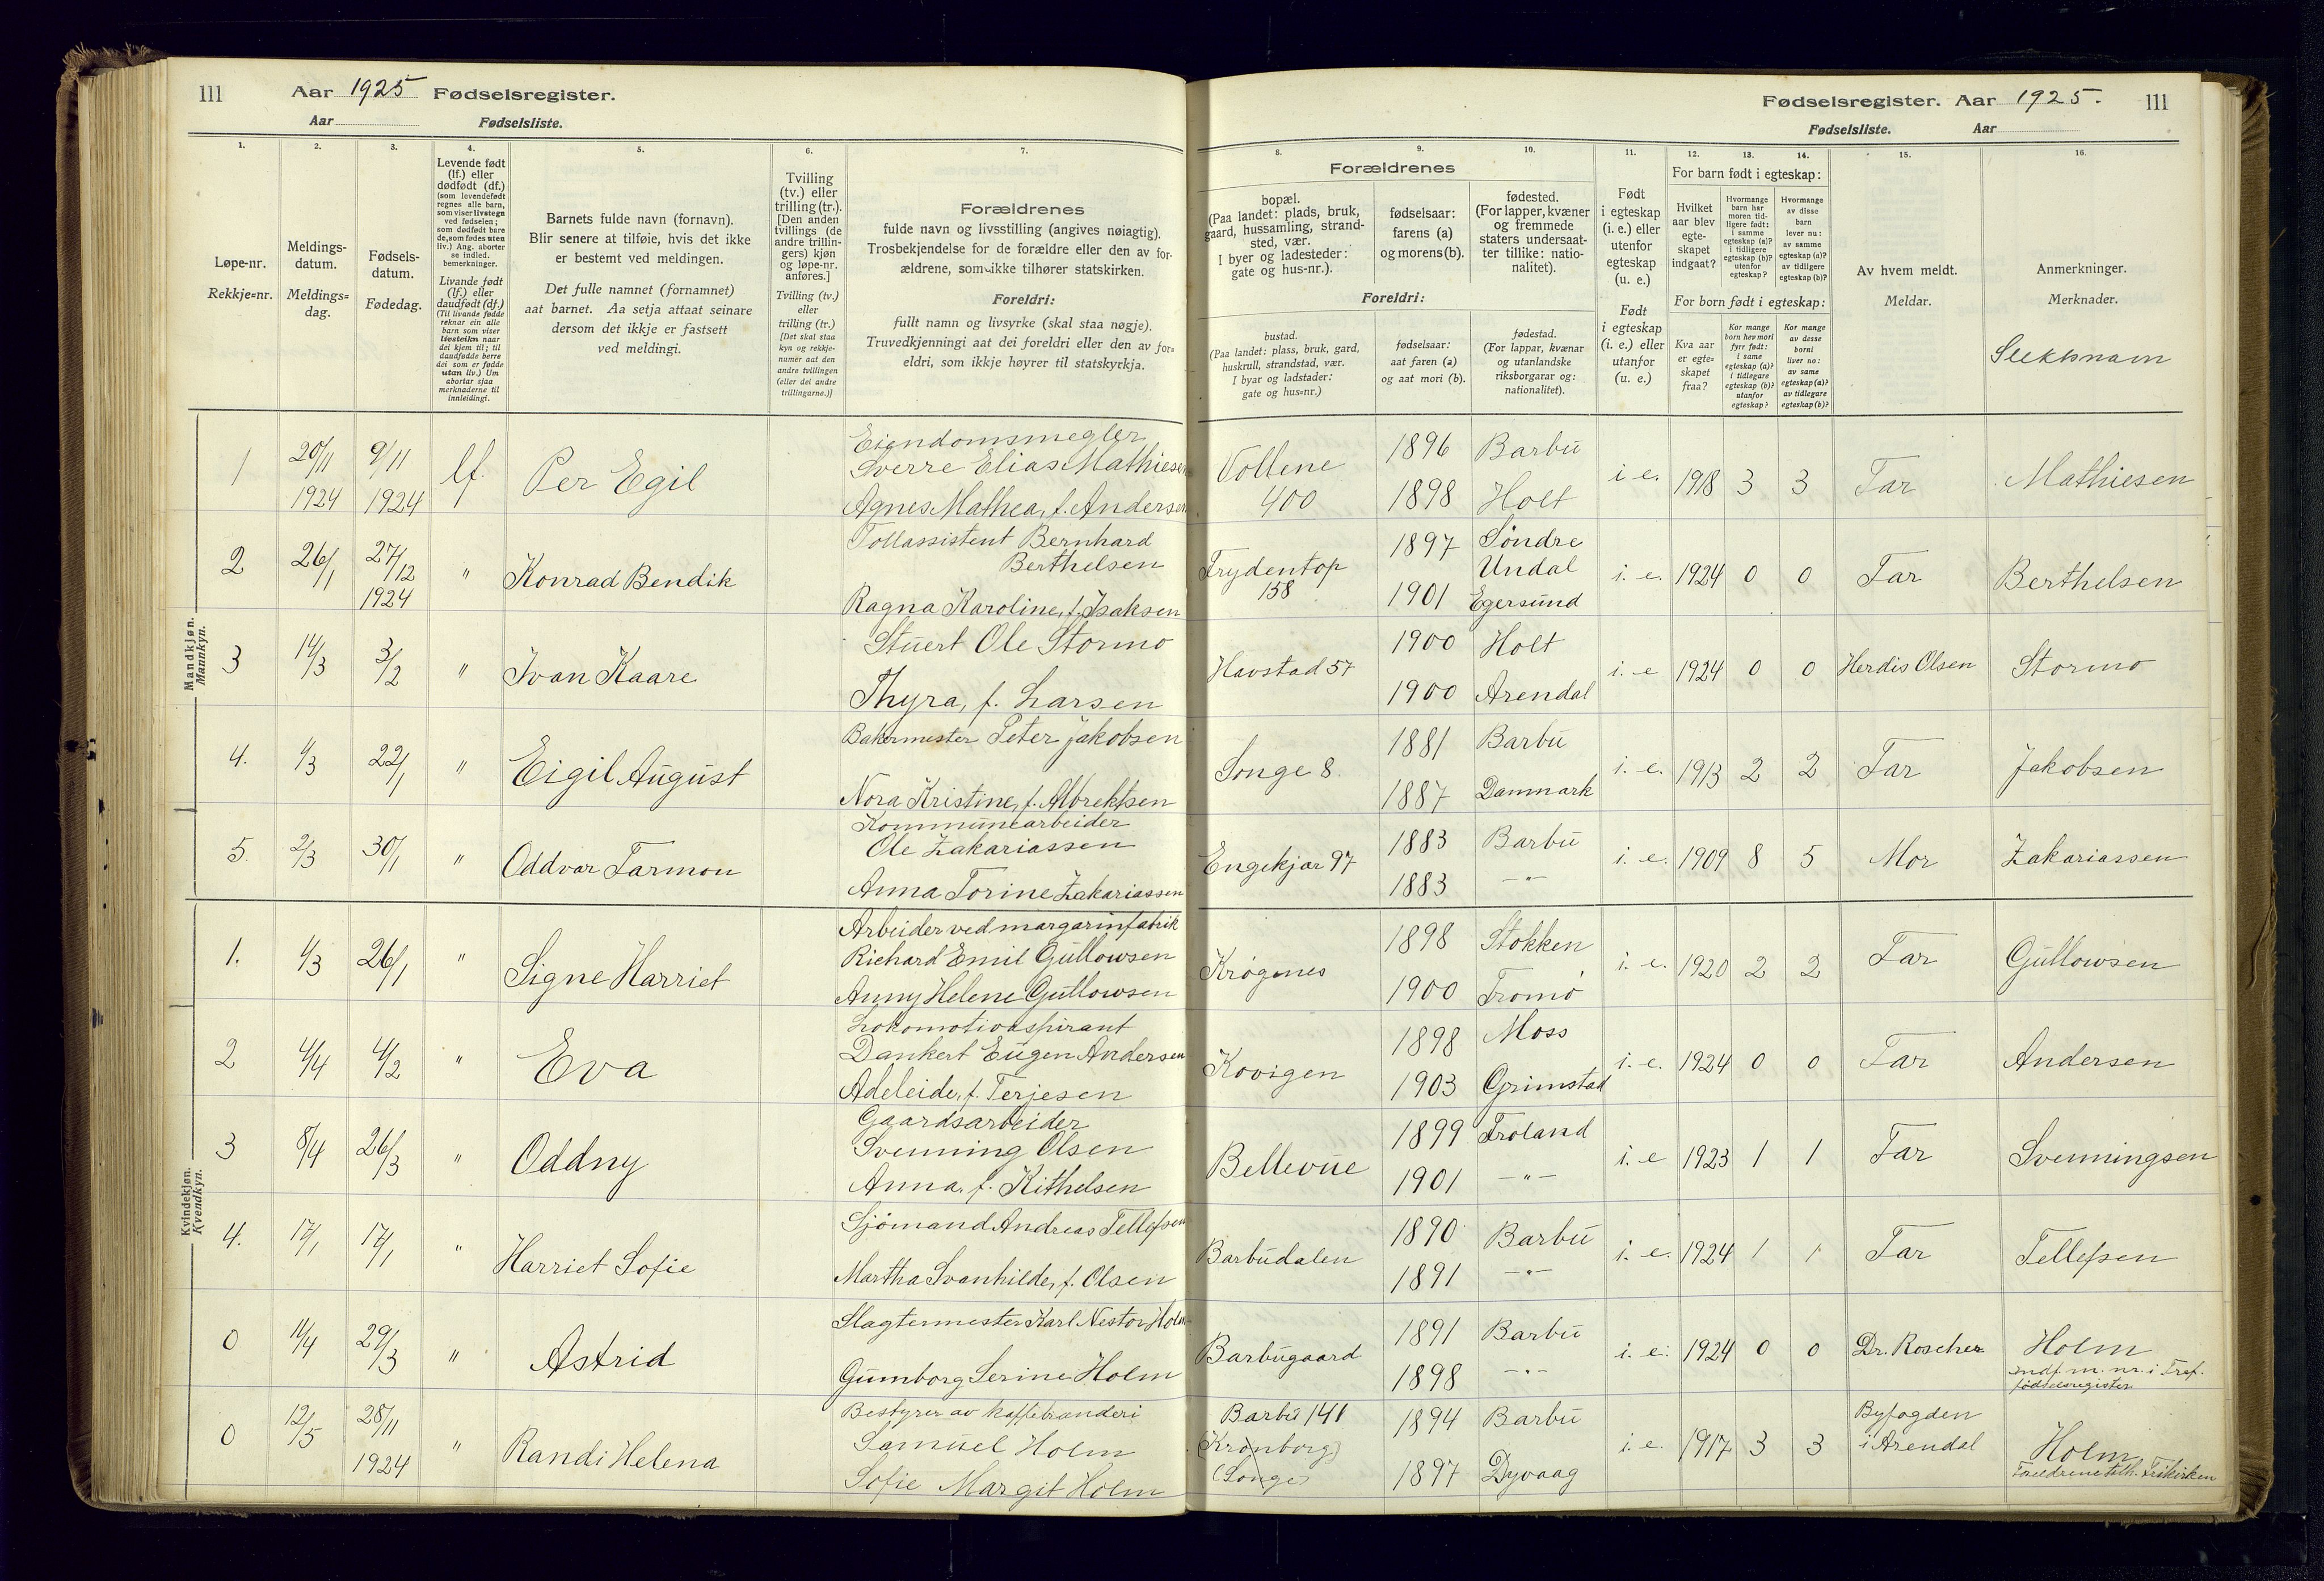 111 Aar 1925 Fødselsregister.
Aar Fødselsliste.
Fødselsregister. Aar 1925. 111
Fødselsliste. Aar
1.
Løpe-nr.
Rekkje=nr.
2.
Meldings-
datum.
Meldings=
dag.
3.
Fødsels-
datum.
Fødedag.
4.
Levende født
(lf.) eller
dødfødt (df.)
(som levendefødt
regnes alle barn,
som viser livstegn
ved fødselen;
som dødfødt bare
de, som fødes uten
liv.) Ang. aborter
se indled.
bemerkninger.
Livande født
(lf.) eller
daudfødt (df.)
(Til livande fødde
reknar ein alle
barn som viser
livsteikn naar
dei kjem til; til
daudfødde berre
dei som er fødde
utan liv.) Um
abortar sjaa
merknaderne til
innleidingi.
5.
Barnets fulde navn (fornavn).
Blir senere at tilføie, hvis det ikke
er bestemt ved meldingen.
Det fulle namnet (fornamnet)
aat barnet. Aa setja attaat seinare
dersom det ikkje er fastsett
ved meldingi.
6.
Tvilling
(tv.) eller
trilling (tr.).
[Den anden
tvillings (de
andre trillin-
gers) kjøn
og løpe-nr.
anføres.]
Tvilling (tv.)
eller
trilling (tr.)
[Det skal staa
kyn og rekkje-
numer aat den
andre tvillingen
(eller dei andre
trillingarne.)]
7.
Forældrenes
fulde navn og livsstilling (angives nøiagtig).
Trosbekjendelse for de forældre eller den av for-
ældrene, som ikke tilhører statskirken.
Foreldri:
fullt namn og livsyrke (skal staa nøgje).
Truvedkjenningi aat dei foreldri eller den av for=
eldri, som ikkje høyrer til statskyrkja.
Forældrenes
8.
bopæl.
(Paa landet: plads, bruk,
gaard, hussamling, strand-
sted, vær.
I byer og ladesteder:
gate og hus-nr.).
9.
fødselsaar:
farens (a)
og morens (b).
10.
fødested.
(For lapper, kvæner
og fremmede
staters undersaat-
ter tillike: natio-
nalitet).
Foreldri:
bustad.
(Paa landet: plass, bruk, gard,
huskrull, strandstad, vær.
I byar og ladstader:
gate og hus=nr.)
fødselsaar:
aat faren (a)
og aat mori (b).
fødestad.
(For lappar, kvænar
og utanlandske
riksborgarar og:
nationalitet).
11.
Født
i egteskap
(i. e.) eller
utenfor
egteskap
(u. e.)
Født
i egteskap
(i. e.) eller
utanfor
(u. e.)
12. 13. 14.
For barn født i egteskap:
Hvilket
aar blev
egte-
skapet
indgaat?
Hvormange
barn har
moren tid-
ligere født:
i samme
egteskap (a)?
i tidligere
egteskap (b)?
utenfor
egteskap?
Hvormange
av disse
barn
lever nu:
av samme
egteskap (a)?
av tidligere
egteskap (b)?
For born født i egteskap:
Kva aar
er egte-
skapet
fraa?
Kor mange
born hev mori
fyrr født:
i same
egteskap (a)?
i tidlegare
egteskap (b)?
utanfor
egteskap?
Kor mange
av desse
borni
liver no:
av same
egteskap (a)?
av tidlegare
egteskap (b)?
15.
Av hvem meldt.
Meldar.
16.
Anmerkninger.
Merknader.
Slektsnavn
Mandkjøn.
Mannkyn.
1 20/11 1924 9/11 1924 lf. Per Egil
Eiendomsmegler
Sverre Elias Mathiesen
Agnes Mathea, f. Andersen
Vollene 400 1896 Barbu
1898 Holt
i e. 1918 3 3 Far Mathiesen
2 26/1 27/12 1924 " Konrad Bendik
Tollassistent Bernhard
Berthelsen
Ragna Karoline, f. Isaksen
Frydentop 158 1897 Søndre Undal
1901 Egersund
i. e. 1924 0 0 Far Berthelsen
3 14/3 3/2 " Ivan Kaare
Stuert Ole Stormo
Thyra, f. Larsen
Havstad 57 1900 Holt
1900 Arendal
i. e 1924 0 0 Herdis Olsen Stormo
4. 4/3 22/1 " Eigil August
Bakermester Peter Jakobsen
Nora Kristine, f. Albrektsen
Songe 8. 1881 Barbu
1887 Danmark
i. e. 1913 2 2 Far Jakobsen
5. 2/3 30/1 " Oddvar Farmon
Kommunearbeider
Ole Zakariassen
Anna Torine Zakariassen
Engekjær 97 1883 Barbu
1883 —"—
i. e. 1909 8 5 Mor Zakariassen
Kvindekjøn.
Kvendkyn.
1. 4/3 26/1 " Signe Harriet
Arbeider ved margarinfabrik
Richard Emil Gullowsen
Anny Helene Gullowsen
Krøgenes 1898 Stokken
1900 Tromø
i. e. 1920 2 2 Far Gullowsen
2 4/4 4/2 " Eva
Lokomotivaspirant
Dankert Eugen Andersen
Adeleide, f. Terjesen
Kovigen 1898 Moss
1903 Grimstad
i. e. 1924 0 0 Far Andersen
3 8/4 26/3 " Oddny
Gaardsarbeider
Svenning Olsen
Anna, f. Kithelsen
Bellevue 1899 Froland
1901 —"—
i. e 1923 1 1 Far Svenningsen
4. 17/1 17/1 " Harriet Sofie
Sjömand Andreas Tellefsen
Martha Svanhilde, f. Olsen
Barbudalen 1890 Barbu
1891 —"—
i. e. 1924 1 1 Far Tellefsen
0 11/4 29/3 " Astrid
Slagtermester Karl Nestor Holm
Gunnborg Serine Holm
Barbugaard 1891 Barbu
1898 —"—
i. e. 1924 0 0 Dr. Roscher Holm
indf. m. nr. i Tref.
fødselsregister
0 12/5 28/11 1924 " Randi Helena
Bestyrer av kaffebrænderi
Samuel Holm
Sofie Margit Holm
Barbu 141
(Kronborg)
(Songe)
1894 Barbu
1897 Dyvaag
i. e. 1917 3 3 Byfogden
i Arendal
Holm
Foreldrene tilh. Frikirken